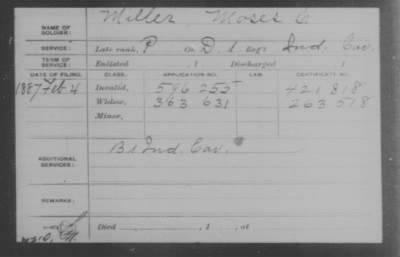 NAME OF SOLDIER: Miller, Moses C
SERVICE: Late rank, P Co. D, 1 Reg't Ind. Cav.
TERM OF SERVICE: Enlisted , 1 Discharged , 1
DATE OF FILING. CLASS. APPLICATION NO. LAW. CERTIFICATE NO.
1887 Feb 4 Invalid, 596 255 421 818
Widow, 363 631 263 518
Minor,
ADDITIONAL SERVICES: B 1 Ind. Cav.
REMARKS:
Died , 1 , at